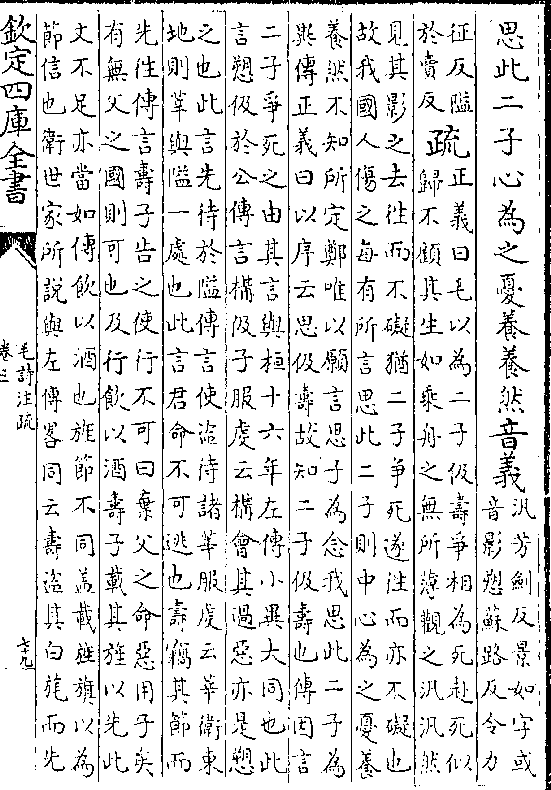 思此二子心為之憂養養然音義汎芳劒反景如字或
音影愬蘇路反令力
征反隘
於賣反疏正義曰毛以為二子伋壽爭相為死赴死似
歸不顧其生如乘舟之無所薄觀之汎汎然
見其影之去往而不礙猶二子爭死遂往而亦不礙也
故我國人傷之每有所言思此二子則中心為之憂養
養然不知所定鄭唯以願言思子為念我思此二子為
異傳正義曰以序云思伋壽故知二子伋壽也傳因言
二子爭死之由其言與桓十六年左傳小異大同也此
言愬伋於公傳言構伋子服虔云構會其過惡亦是愬
之也此言先待於隘傳言使盜待諸莘服虔云莘衛東
地則莘與隘一處也此言君命不可逃也壽竊其節而
先往傳言壽子告之使行不可曰棄父之命惡用子矣
有無父之國則可也及行飲以酒壽子載其旌以先此
文不足亦當如傳飲以酒也旌節不同蓋載旌旗以為
節信也衛世家所説與左傳畧同云壽盜其白旄而先
欽定四庫全書
毛詩注疏
卷三
六九